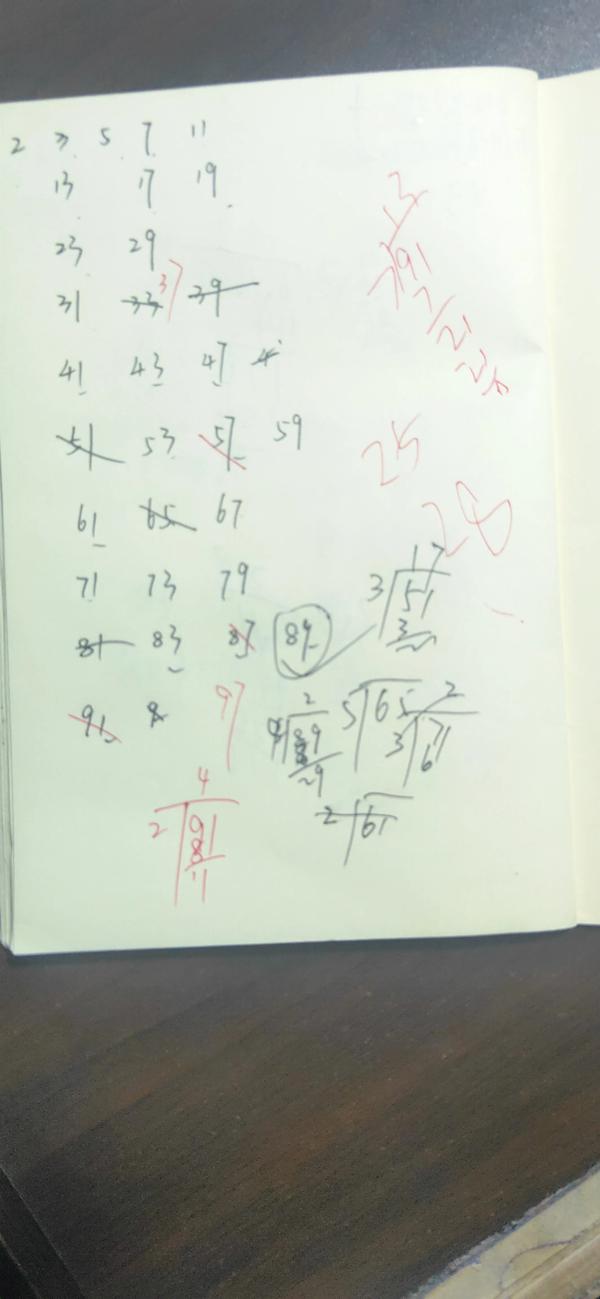 2 3 5 7 11
13 17 19
23 29
31 33 37 39
41 43 47 4
51 53 57 59
61 65 67
71 73 79
81 83 87 89
91 97
13
7 91
7
21
21
25
28
17
3 51
3
2
89
29
5 65
2
3 71
6
2 61
4
2 91
8
11